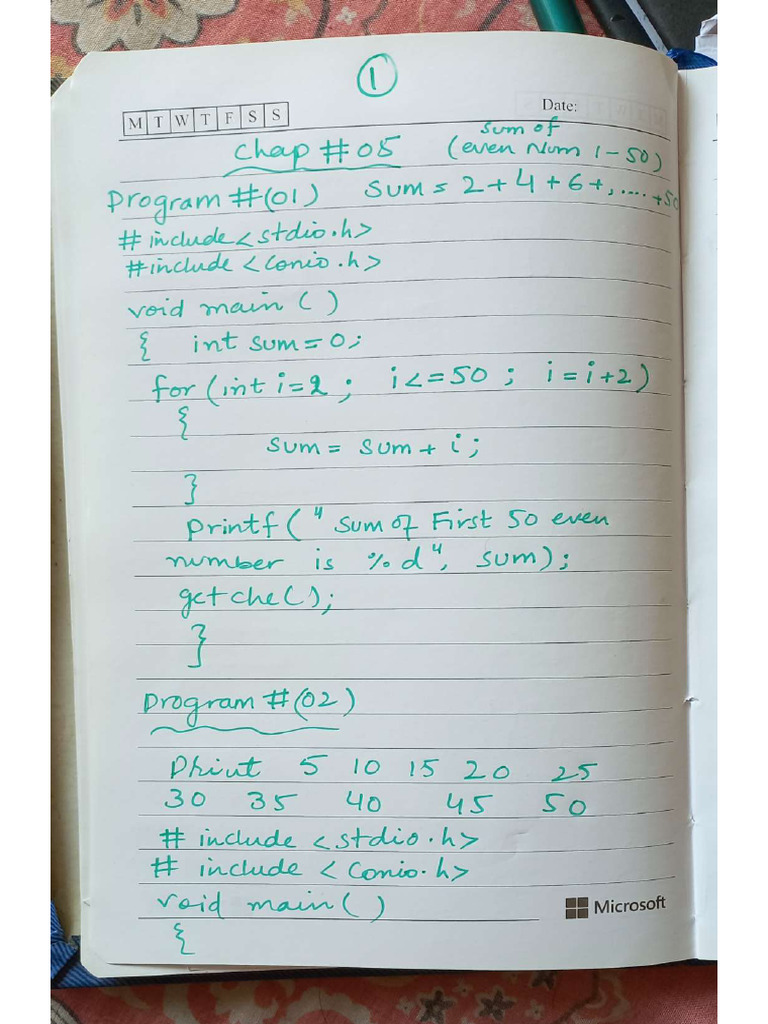 1
M T W T F S S
Date:
Chap # 05
sum of
(even Num 1-50)
Program #(01) Sum = 2+4+6+,....+50
# include <stdio.h>
# include <conio.h>
void main ( )
{ int sum=0;
for (int i=2 ; i<=50 ; i=i+2)
{
sum = sum + i ;
}
printf ("sum of First 50 even
number is %d", sum);
getche( );
}
Program #(02)
Print 5 10 15 20 25
30 35 40 45 50
# include <stdio.h>
# include <conio.h>
void main ( )
{
Microsoft